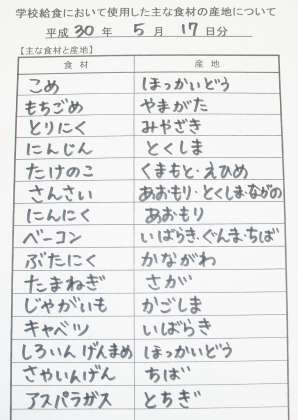 学校給食において使用した主な食材の産地について
平成 30 年 5 月 17 日分
【主な食材と産地】
食 材 産 地
こめ ほっかいどう
もちごめ やまがた
とりにく みやざき
にんじん とくしま
たけのこ くまもと・えひめ
さんさい あおもり・とくしま・ながの
にんにく あおもり
ベーコン いばらき・ぐんま・ちば
ぶたにく かながわ
たまねぎ さが
じゃがいも かごしま
キャベツ いばらき
しろいんげんまめ ほっかいどう
さやいんげん ちば
アスパラガス とちぎ